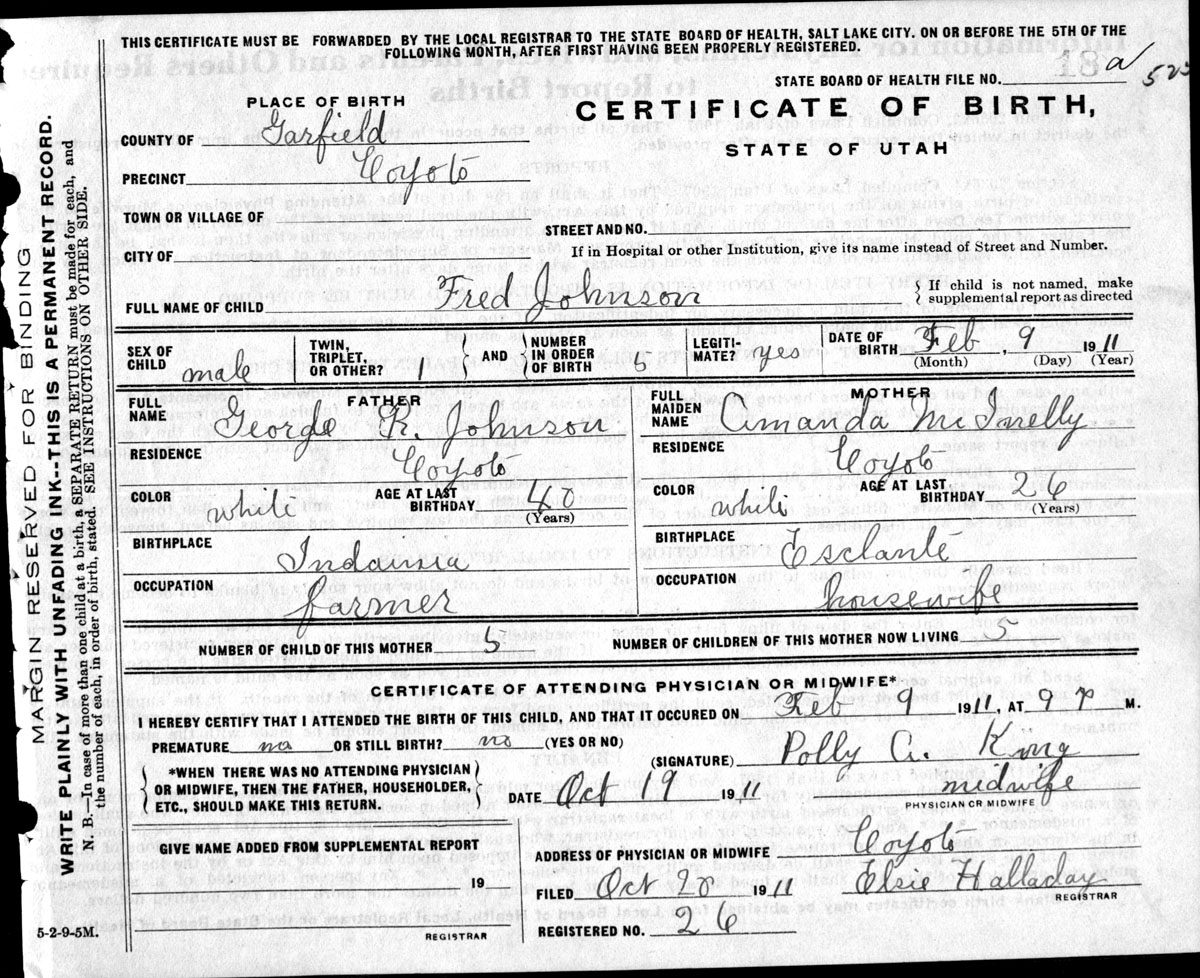 THIS CERTIFICATE MUST BE FORWARDED BY THE LOCAL REGISTRAR TO THE STATE BOARD OF HEALTH, SALT LAKE CITY. ON OR BEFORE THE 5TH OF THE
FOLLOWING MONTH, AFTER FIRST HAVING BEEN PROPERLY REGISTERED.
STATE BOARD OF HEALTH FILE NO. a 525
PLACE OF BIRTH
CERTIFICATE OF BIRTH,
STATE OF UTAH
COUNTY OF Garfield
PRECINCT Coyoto
TOWN OR VILLAGE OF
STREET AND NO.
CITY OF
If in Hospital or other Institution, give its name instead of Street and Number.
FULL NAME OF CHILD Fred Johnson
{ If child is not named, make
supplemental report as directed
SEX OF CHILD male
TWIN, TRIPLET, OR OTHER? 1 { AND } NUMBER IN ORDER OF BIRTH 5
LEGITI-MATE? yes
DATE OF BIRTH Feb, 9 1911
(Month) (Day) (Year)
FATHER
FULL NAME George R. Johnson
RESIDENCE Coyoto
COLOR white AGE AT LAST BIRTHDAY 40
(Years)
BIRTHPLACE Indainia
OCCUPATION farmer
MOTHER
FULL MAIDEN NAME Amanda McInelly
RESIDENCE Coyoto
COLOR white AGE AT LAST BIRTHDAY 26
(Years)
BIRTHPLACE Esclante
OCCUPATION housewife
NUMBER OF CHILD OF THIS MOTHER 5 NUMBER OF CHILDREN OF THIS MOTHER NOW LIVING 5
CERTIFICATE OF ATTENDING PHYSICIAN OR MIDWIFE*
I HEREBY CERTIFY THAT I ATTENDED THE BIRTH OF THIS CHILD, AND THAT IT OCCURED ON Feb 9 1911, AT 9 P M.
PREMATURE no OR STILL BIRTH? no (YES OR NO)
(SIGNATURE) Polly A. King
{ *WHEN THERE WAS NO ATTENDING PHYSICIAN
OR MIDWIFE, THEN THE FATHER, HOUSEHOLDER,
ETC., SHOULD MAKE THIS RETURN. }
DATE Oct 19 1911
midwife
PHYSICIAN OR MIDWIFE
GIVE NAME ADDED FROM SUPPLEMENTAL REPORT
19
REGISTRAR
ADDRESS OF PHYSICIAN OR MIDWIFE Coyoto
FILED Oct 20 1911 Elsie Halladay
REGISTRAR
REGISTERED NO. 26
5-2-9-5M.
MARGIN RESERVED FOR BINDING
WRITE PLAINLY WITH UNFADING INK--THIS IS A PERMANENT RECORD.
N. B.—In case of more than one child at a birth, a SEPARATE RETURN must be made for each, and
the number of each, in order of birth, stated. SEE INSTRUCTIONS ON OTHER SIDE.